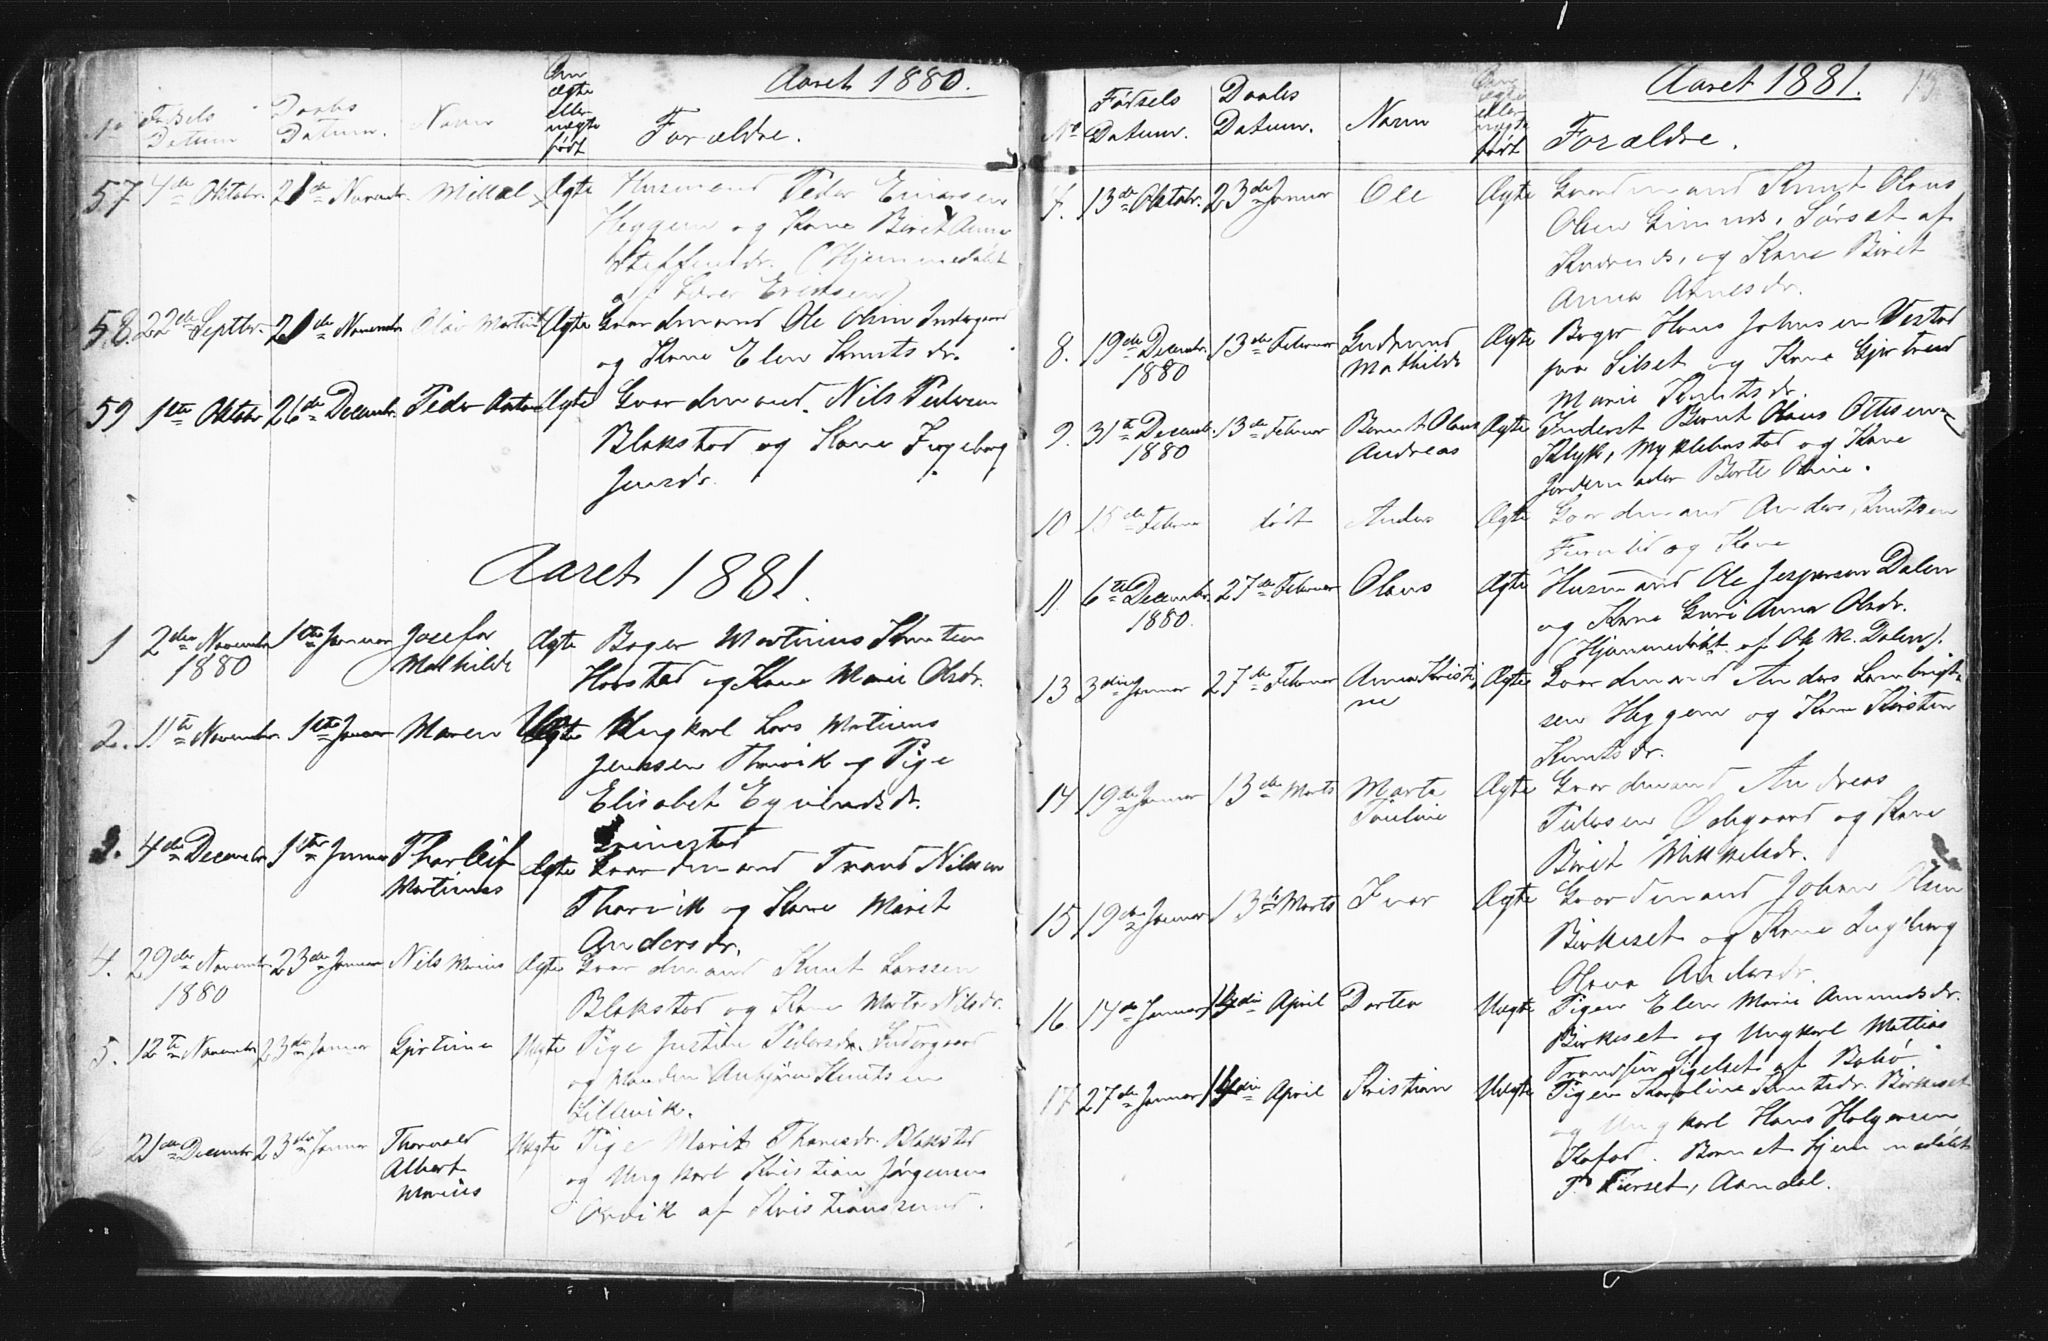 Aaret 1880.
No Fødsels Datum
Daabs Datum.
Navn
Om ægte eller uægte født
Forældre.
57 4de Oktobr. 21de Novembr. Mikal Ægte Husmand Peder Einarsen
Heggem og Kone Berit Anna
Steffensdr. (Hjemmedøbt
af Lærer Eriksen)
58. 22de Septbr. 21de Novembr. Olav Martin Ægte Gaardmand Ole Olsen Indergaard
og Kone Elen Knutsdr.
59 1ste Oktobr 26de Decembr. Peder Anton Ægte Gaardmand Nils Pedersen
Blakstad og Kone Ingeborg
Jensdr.
Aaret 1881.
1 2den Novembr 1ste Januar Josefa Ægte Bøger Martinus Knutsen
1880 Mathilde
Harstad og Kone Marie Olsdr.
2. 11te Novembr 1ste Januar Maren Uægte Ungkarl Lars Martinus
Jenssen Thorvik og Pige
Elisabet Eyvindsdr.
Grinestad
3. 4de Decembr 1ste Januar Tharleif Ægte Gaardmand Trond Nilssen
Martinus
Thorvik og Kone Marit
Andersdr.
4. 29de Novembr 23de Januar Nils Marius Ægte Gaardmand Knut Larssen
1880
Blakstad og Kone Marta Nilsdr.
5. 12te Novembr 23de Januar Gjertine Uægte Pige Justine Pedersdr. Indergaard
og Manden Anbjørn Knutsen
Lillevik.
6 21de Decembr 23de Januar Thorvald Uægte Pige Marit Thoresdr. Blakstad
Albert
og Ungkarl Kristian Jørgensen
Marius
Orvik af Kristianssund.
Aaret 1881.
13
No
Fødsels Datum.
Daabs Datum.
Navn
Om ægte eller uægte født
Forældre.
7. 13de Oktobr. 23de Januar Ole Ægte Gaardmand Knut Olaus
Olsen Gimnes, Sørset af
Kvernes, og Kone Berit
Anna Arnesdr.
8. 19de Decembr. 13de Februar Gudrund Ægte Bøger Hans Johnsen Vestad
1880 Mathilde
paa Silset og Kone Gjertrud
Marie Knutsdr.
9. 31te Decembr. 13de Februar Bernt Olaus Ægte Inderst Bernt Olaus Ottesen
1880 Andreas
Klyk, Myklebustad og Kone
Jordemoder Berte Oline.
10 15de Februar død Anders Ægte Gaardmand Anders Knutsen
Furulid og Kone
11 6te Decembr. 27de Februar Olaus Ægte Husmand Ole Jespersen Dalen
1880.
og Kone Guri Anna Olsdr.
(Hjemmedøbt af Ole M. Dalen).
13 3die Januar 27de Februar Anna Kristi- Ægte Gaardmand Anders Lambrigt-
ne
sen Heggem og Kone Kirsten
Knutsdr.
14 19de Januar 13de Marts Marta Ægte Gaardmand Andreas
Pauline
Pedersen Ødegaard og Kone
Berit Mikkelsdr.
15 19de Januar 13de Marts Ivar Ægte Gaardmand Johan Olsen
Birkeset og Kone Ingeborg
Olava Andersdr.
16 14de Januar 4die April Dortea Uægte Pigen Elen Marie Amundsdr.
Birkeset og Ungkarl Mattias
Trondsen Sigelset af Bolsø
17. 27de Januar 4die April Kristian Uægte Pigen Karoline Knutsdr. Birkeset
og Ungkarl Hans Holgersen
Kafod. Barnet hjemmedøbt
P. Fiærset, Aandal.